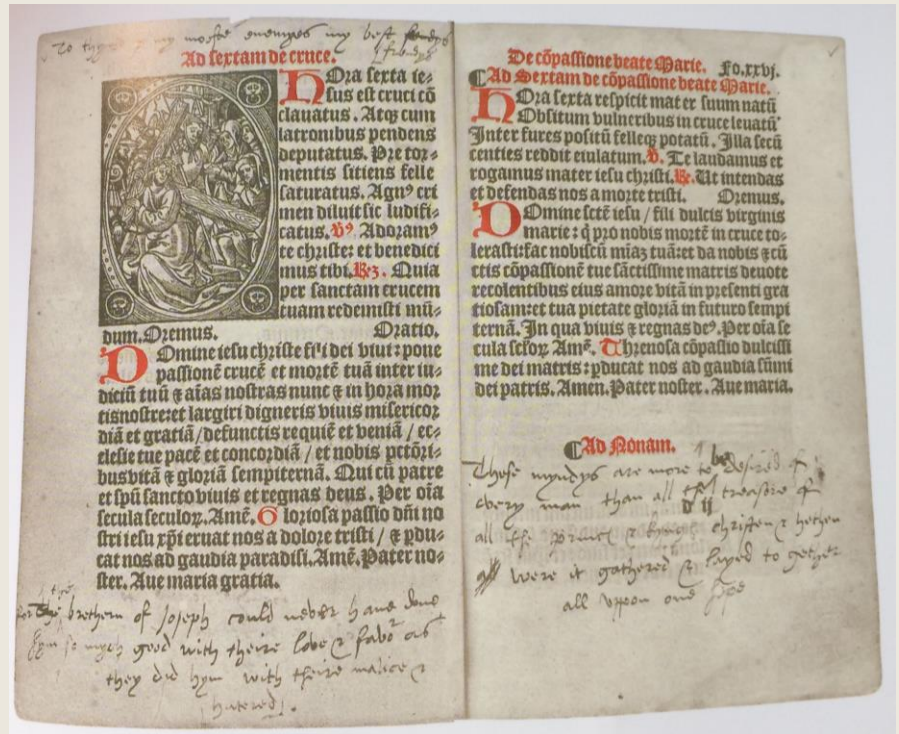 To thynk my moste enemyes my best
frendys
Ad sextam de cruce.
HOra sexta ie⸗
sus est cruci cō
clauatus. Atqꝫ cum
latronibus pendens
deputatus. Pre tor⸗
mentis sitiens felle
saturatus. Agnꝰ cri
men diluit sic ludifi⸗
catus. ℣ꝰ. Adoramꝰ
te christe: et benedici
mus tibi. ℞ꝫ. Quia
per sanctam crucem
tuam redemisti mū⸗
dum. Oremus. Oratio.
DOmine iesu christe fili dei viui: pone
passionē crucē et mortē tuā inter iu⸗
diciū tuū ⁊ aīas nostras nunc ⁊ in hora mor
tis nostre: et largiri digneris viuis misericor
diā et gratiā / defunctis requiē et veniā / ec⸗
clesie tue pacē et concordiā / et nobis pctōri⸗
bus vitā ⁊ gloriā sempiternā. Qui cū patre
et spū sancto viuis et regnas deus. Per oīa
secula seculoꝝ. Amē. Gloriosa passio dn̄i no
stri iesu xp̄i eruat nos a dolore tristi / ⁊ ꝑdu⸗
cat nos ad gaudia paradisi. Amē. Pater no⸗
ster. Aue maria gratia.
for the brethern of Joseph could never have done
hym so mych good with theire love & favor as
they did hym with theire malice &
hatered.
De cōpassione beate Marie. Fo.xxvj.
¶Ad Sextam de cōpassione beate Marie.
HOra sexta respicit mater suum natū
Obsitum vulneribus in cruce leuatū
Inter fures positū felleqꝫ potatū. Illa secū
centies reddit eiulatum. ℣. Te laudamus et
rogamus mater iesu christi. ℞. Ut intendas
et defendas nos a morte tristi. Oremus.
DOmine sctē iesu / fili dulcis virginis
marie: q̇ pro nobis mortē in cruce to⸗
lerasti: fac nobiscū miāꝫ tuā: et da nobis ⁊ cū
ctis cōpassionē tue sāctissime matris deuote
recolentibus eius amore vitā in presenti gra
tiosam: et tua pietate gloriā in futuro sempi
ternā. In qua viuis ⁊ regnas deꝰ. Per oīa se
cula sc̄loꝝ Amē. Threnosa cōpassio dulcissi
me dei matris: ꝑducat nos ad gaudia sūmi
dei patris. Amen. Pater noster. Aue maria.
¶Ad Nonam.
These myndys are more to be desired of
every man than all the treasore of
d ij
all the princes & kyngs christen & hethen
were it gathered & layed to gether
all vppon one